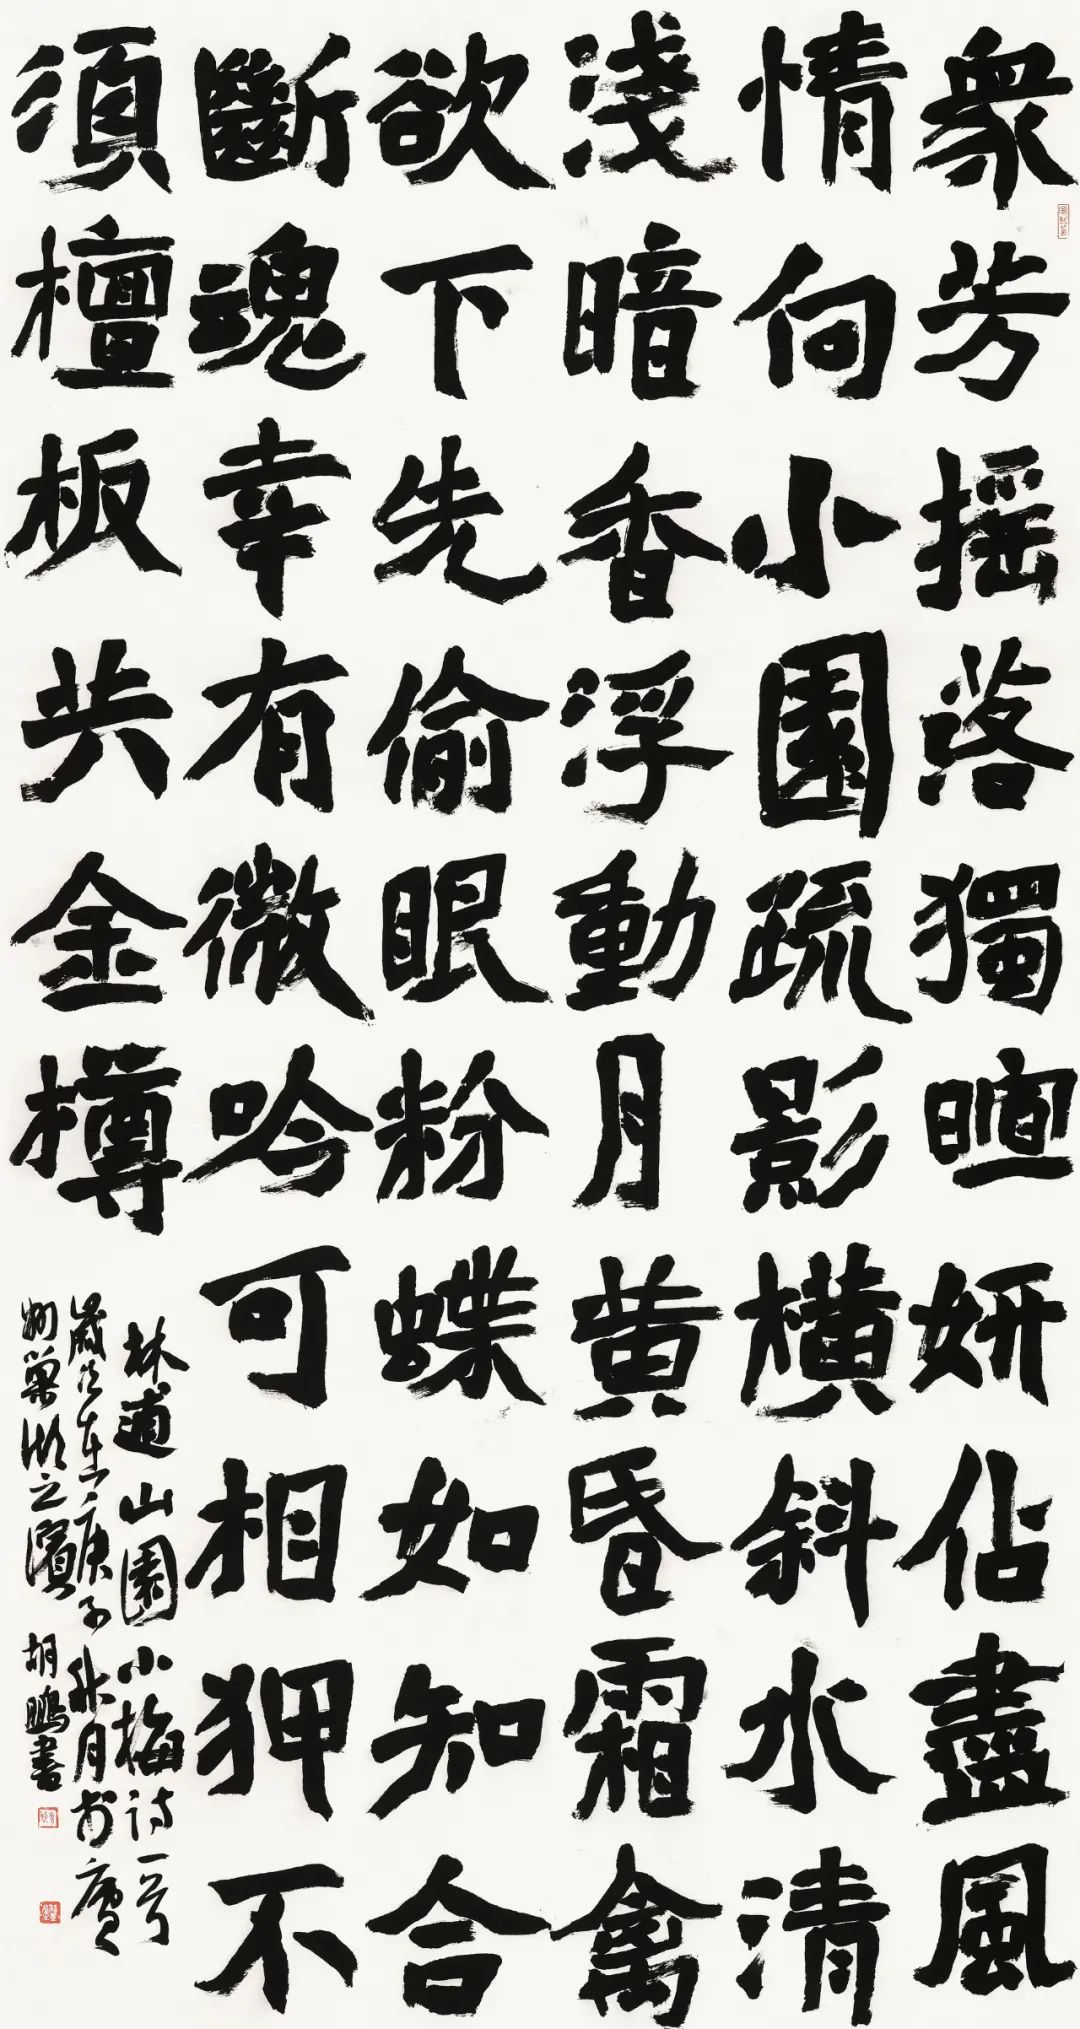 衆芳摇落獨暄妍佔盡風
情向小園疏影橫斜水清
淺暗香浮動月黄昏霜禽
欲下先偷眼粉蝶如知合
斷魂幸有微吟可相狎不
須檀板共金樽
林逋山園小梅诗一首
歲次在庚子秋月於廬
州巢湖之濱 胡鵬書